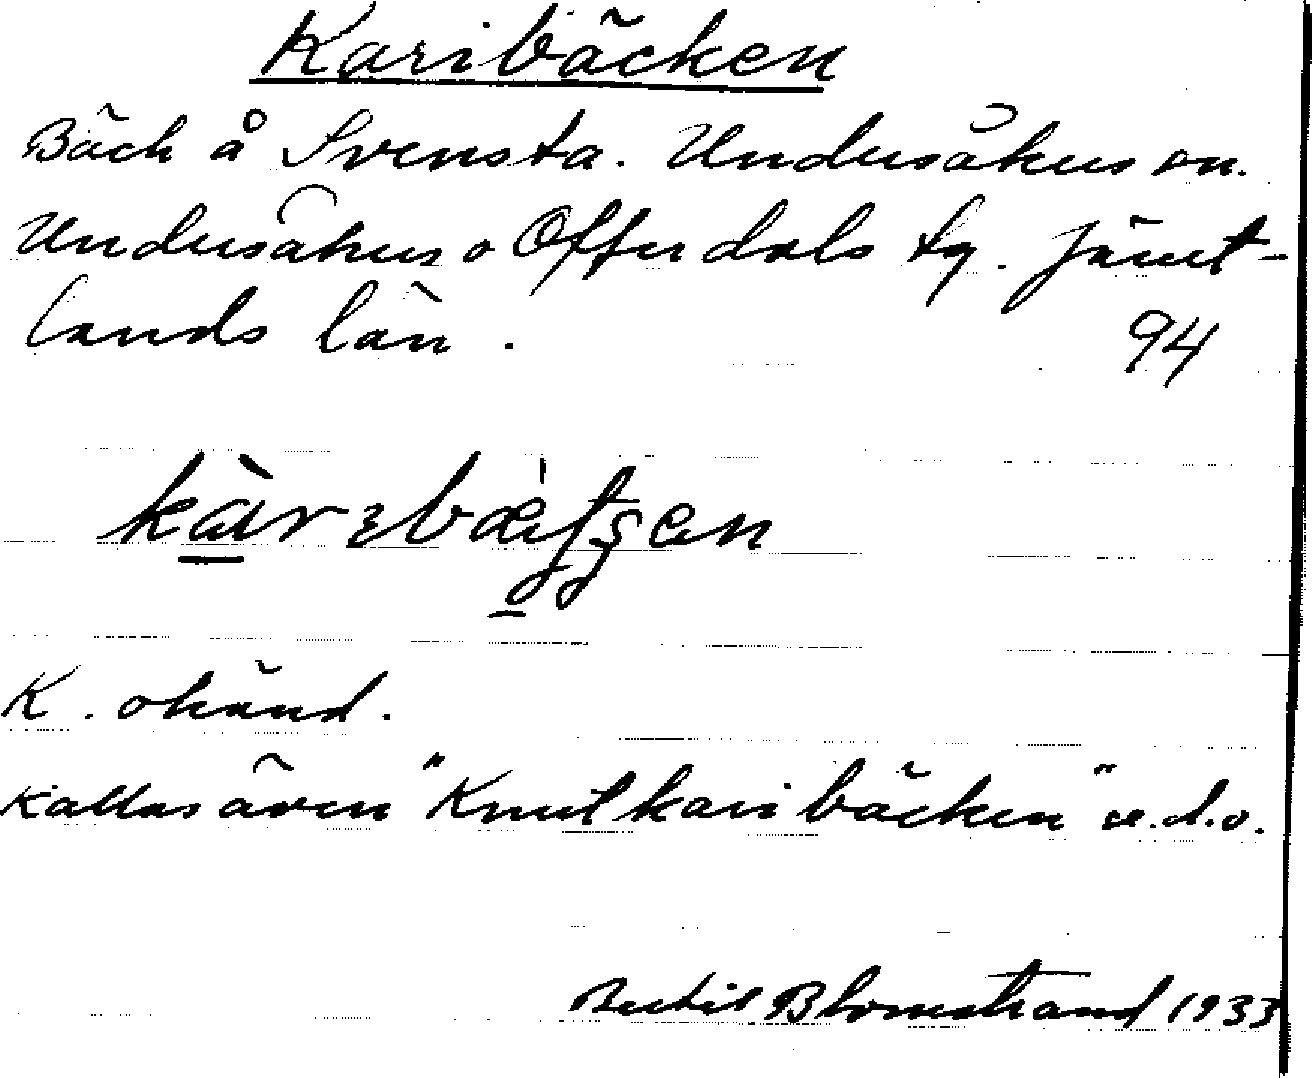 Karibäcken
Bäck å Svensta. Undersåkers sn.
Undersåkers o Offerdals tg. Jämt-
lands län.
94
K. okänd.
Kallas även "Knutkaribäcken" se.d.o.
Bertil Blomstrand 1933